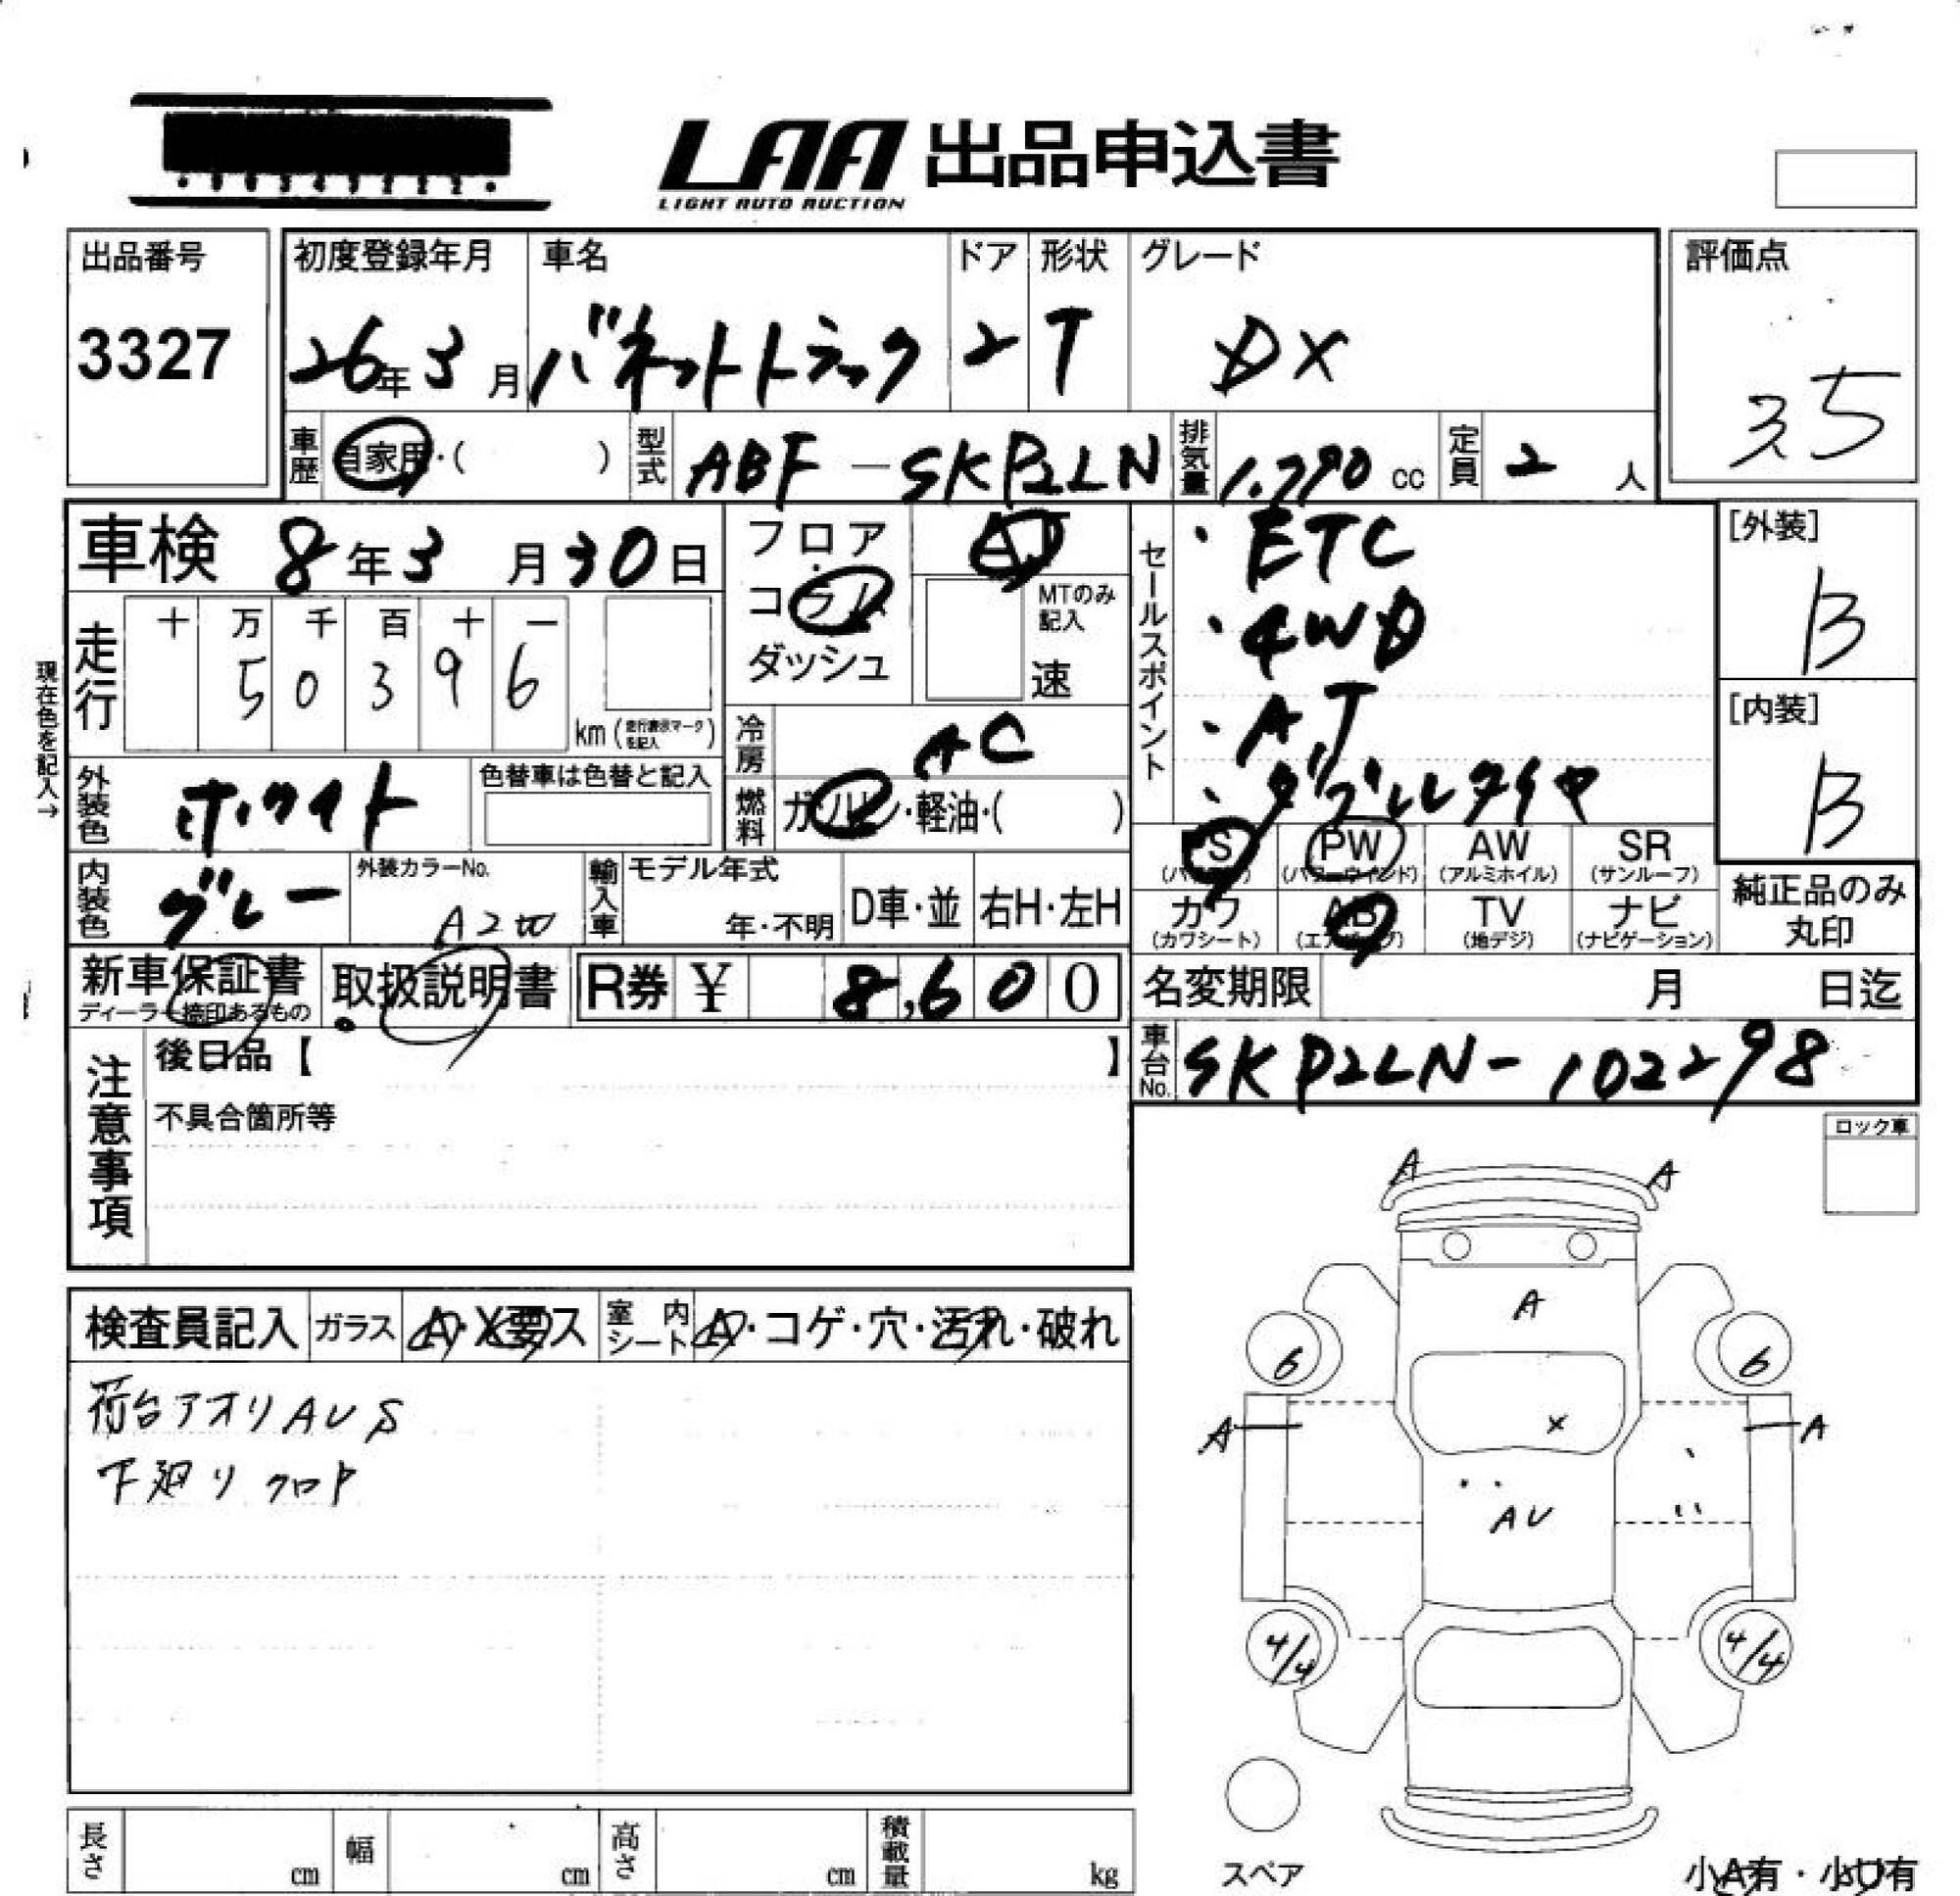 LAA 出品申込書
LIGHT AUTO AUCTION
出品番号
3327
初度登録年月
26年3月
車名
バネットトラック
ドア
2
形状
T
グレード
DX
評価点
3.5
車歴 自家用・( )
型式 ABF-SKP2LN
排気量 1.790 cc
定員 2 人
車検 8年3月30日
走行
十 万 千 百 十 一
5 0 3 9 6
km (走行表示マークを記入)
現在色を記入→
フロア・コラム
ダッシュ
AT
MTのみ記入
速
冷房 AC
燃料 ガソリン・軽油・( )
セールスポイント
・ETC
・4WD
・AT
・ダブルタイヤ
[外装]
B
[内装]
B
外装色 ホワイト
色替車は色替と記入
内装色 グレー
外装カラーNo.
輸入車
モデル年式
年・不明
D車・並
右H・左H
PS PW AW SR
(パワーウィンド) (アルミホイル) (サンルーフ)
カワ AB TV ナビ
(カワシート) (エアバッグ) (地デジ) (ナビゲーション)
純正品のみ丸印
新車保証書
ディーラー捺印あるもの
取扱説明書
R券 ¥ 8,600
名変期限 月 日迄
車台No. SKP2LN-102298
注意事項
後日品【 】
不具合箇所等
ロック車
検査員記入
ガラス A・X要ス
室内シート A・コゲ・穴・汚れ・破れ
荷台アオリAUS
下廻りクロP
A A
A
6 6
A A
X
AU
4/4 4/4
スペア
小A有・小U有
長さ cm
幅 cm
高さ cm
積載量 kg